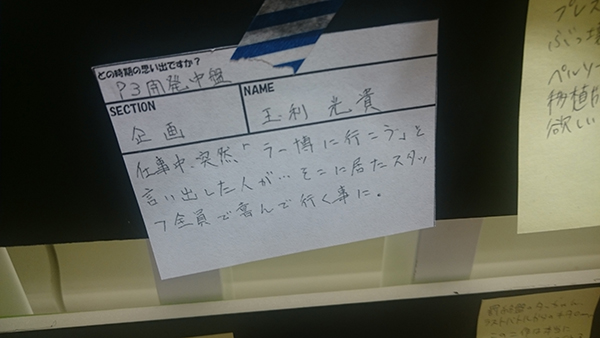 どの時期の思い出ですか？
P3開発中盤
SECTION
企画
NAME
玉利 光貴
仕事中、突然「ラー博に行こう」と
言い出した人が…そこに居たスタッ
フ全員で喜んで行く事に。
プレス
ぶっ壊
ペルソー
移植版
欲しい